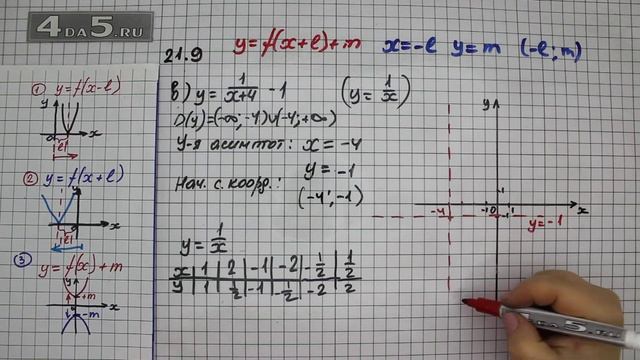 4DA5.RU
21.9 y=f(x+l)+m x=-l y=m (-l; m)
в) y= 1/(x+4) -1 (y= 1/x)
D(y)=(-∞;-4)∪(-4;+∞)
У-я асимптот: x=-4
y=-1
Нач. с. коорд.: (-4;-1)
y= 1/x
x | 1 | 2 | -1 | -2 | -1/2 | 1/2
y | 1 | 1/2 | -1 | -1/2 | -2 | 2
① y=f(x-l)
y
x
l
② y=f(x+l)
y
x
l
③ y=f(x)+m
y
+m
x
-m
y
1
-4 -1 0 1 x
y=-1
4 DA 5